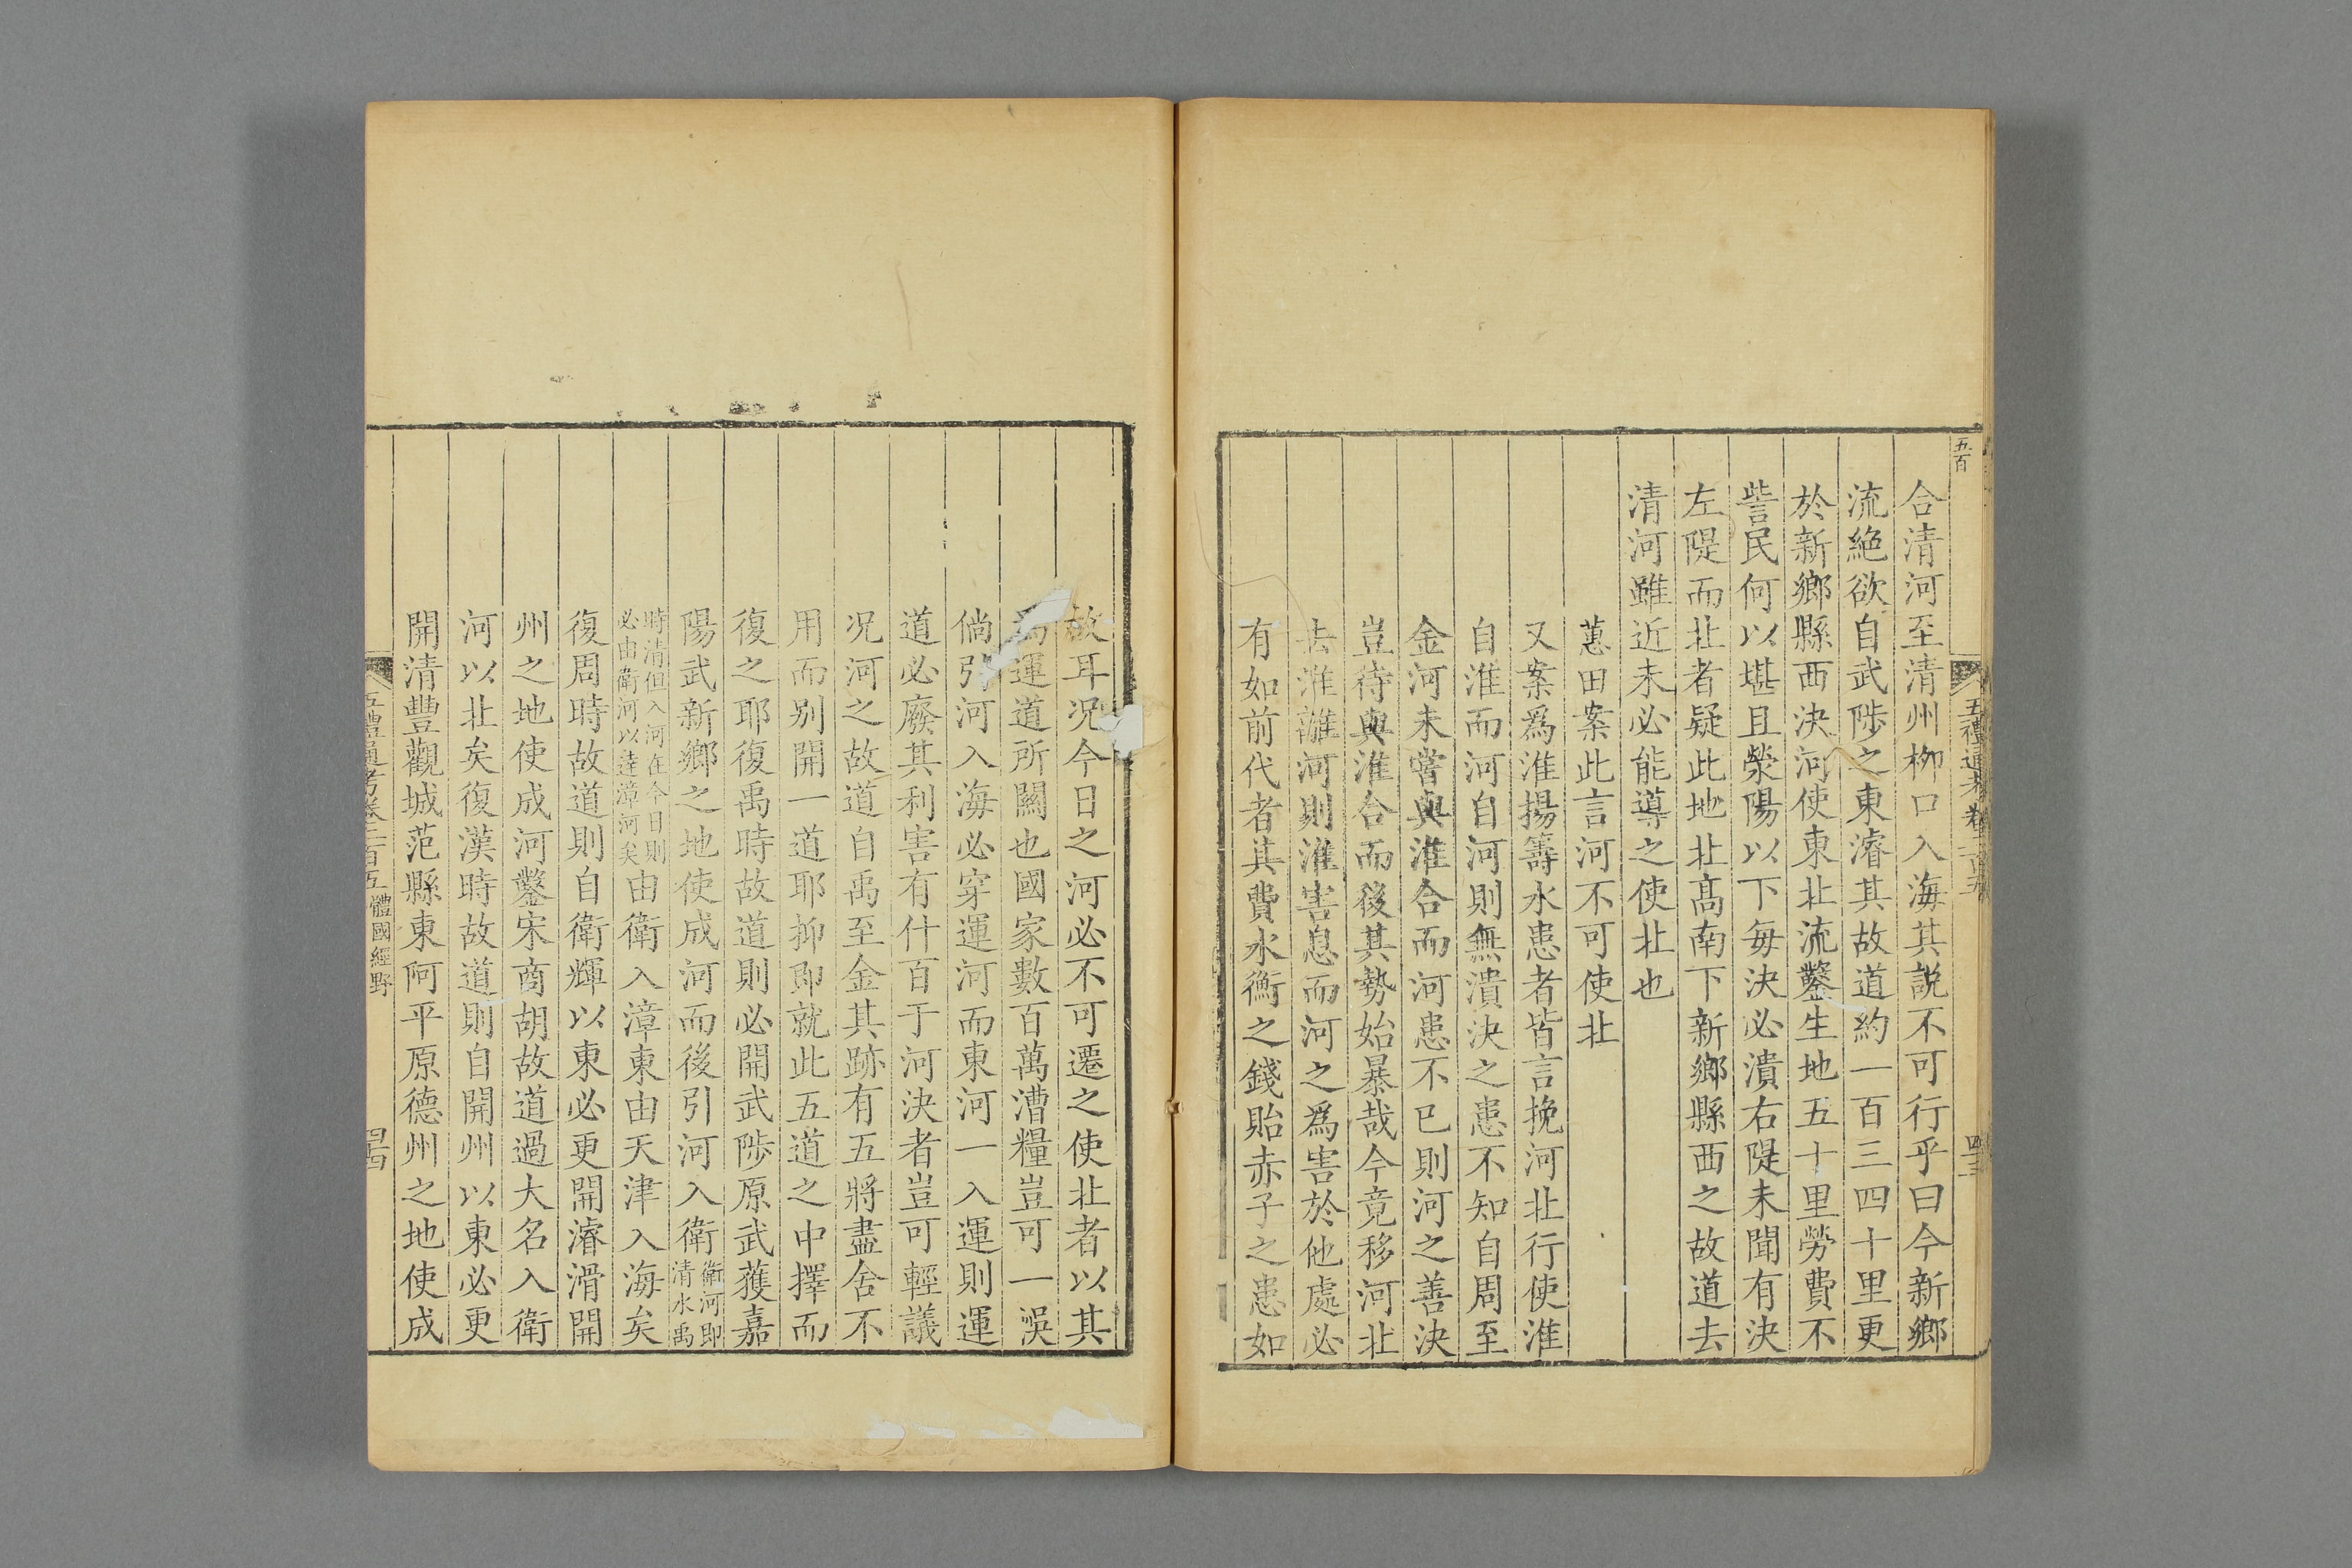 五百
五禮通考卷二百五
四十三
合清河至清州柳口入海其説不可行乎曰今新鄉
流絶欲自武陟之東濬其故道約一百三四十里更
於新鄉縣西決河使東北流鑿生地五十里勞費不
訾民何以堪且滎陽以下每決必潰右隄未聞有決
左隄而北者疑此地北髙南下新鄉縣西之故道去
清河雖近未必能導之使北也
蕙田案此言河不可使北
又案爲淮揚籌水患者皆言挽河北行使淮
自淮而河自河則無潰決之患不知自周至
金河未嘗與淮合而河患不已則河之善決
豈待與淮合而後其勢始暴哉今竟移河北
去淮離河則淮害息而河之爲害於他處必
有如前代者其費水衡之錢貽赤子之患如
故耳况今日之河必不可遷之使北者以其
爲運道所關也國家數百萬漕糧豈可一誤
倘引河入海必穿運河而東河一入運則運
道必廢其利害有什百于河決者豈可輕議
况河之故道自禹至金其跡有五將盡舍不
用而别開一道耶抑即就此五道之中擇而
復之耶復禹時故道則必開武陟原武獲嘉
陽武新鄉之地使成河而後引河入衛衛河即清水禹
時清但入河在今日則必由衛河以達漳河矣由衛入漳東由天津入海矣
復周時故道則自衛輝以東必更開濬滑開
州之地使成河鑿宋商胡故道過大名入衛
河以北矣復漢時故道則自開州以東必更
開清豐觀城范縣東阿平原德州之地使成
五禮通考卷二百五 體國經野
四十四